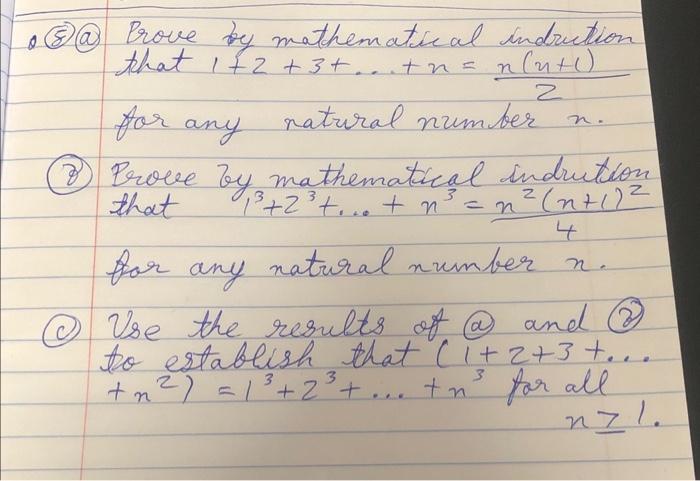 ⑧ ⓐ Prove by mathematical induction
that 1+2+3+...+n = n(n+1)/2
for any natural number n.
ⓑ Prove by mathematical indrution
that 1³+2³+...+n³ = n²(n+1)²/4
for any natural number n.
ⓒ Use the results of ⓐ and ⓑ
to establish that (1+2+3+...
+n²) = 1³+2³+...+n³ for all
n ≥ 1.